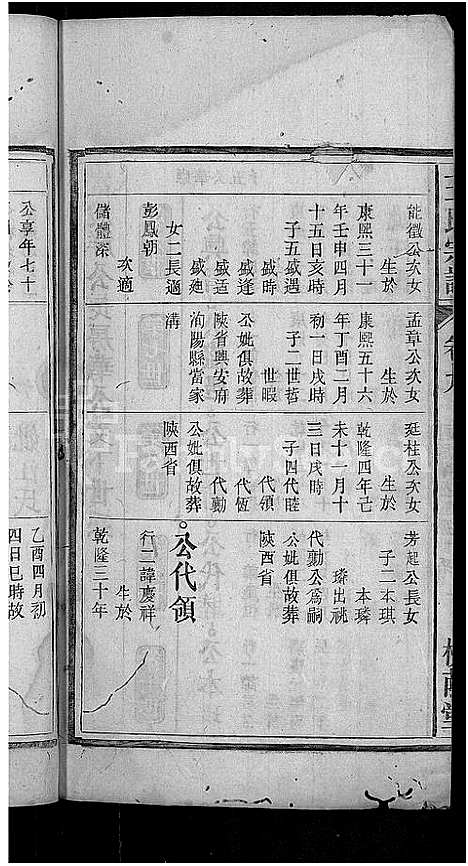 王氏宗譜
卷九
能徵公次女
生於
康熙三十一
年壬申四月
十五日亥時
子五盛遇
盛時
盛逢
盛适
盛遶
女二長適
彭鳳朝
次適
儲體深
孟章公次女
生於
康熙五十六
年丁酉二月
初一日戌時
子二世哲
世暇
公妣俱故葬
陝省興安府
洵陽縣當家
溝
廷桂公次女
生於
乾隆四年己
未十一月十
三日戌時
子四代睦
代領
代恆
代勳
公妣俱故葬
陝西省
芳起公長女
子二本琪
本璘
璘出祧
代勳公爲嗣
公妣俱故葬
陝西省
公代領
行二諱慶祥
生於
乾隆三十年
乙酉四月初
四日巳時故
公享年七十